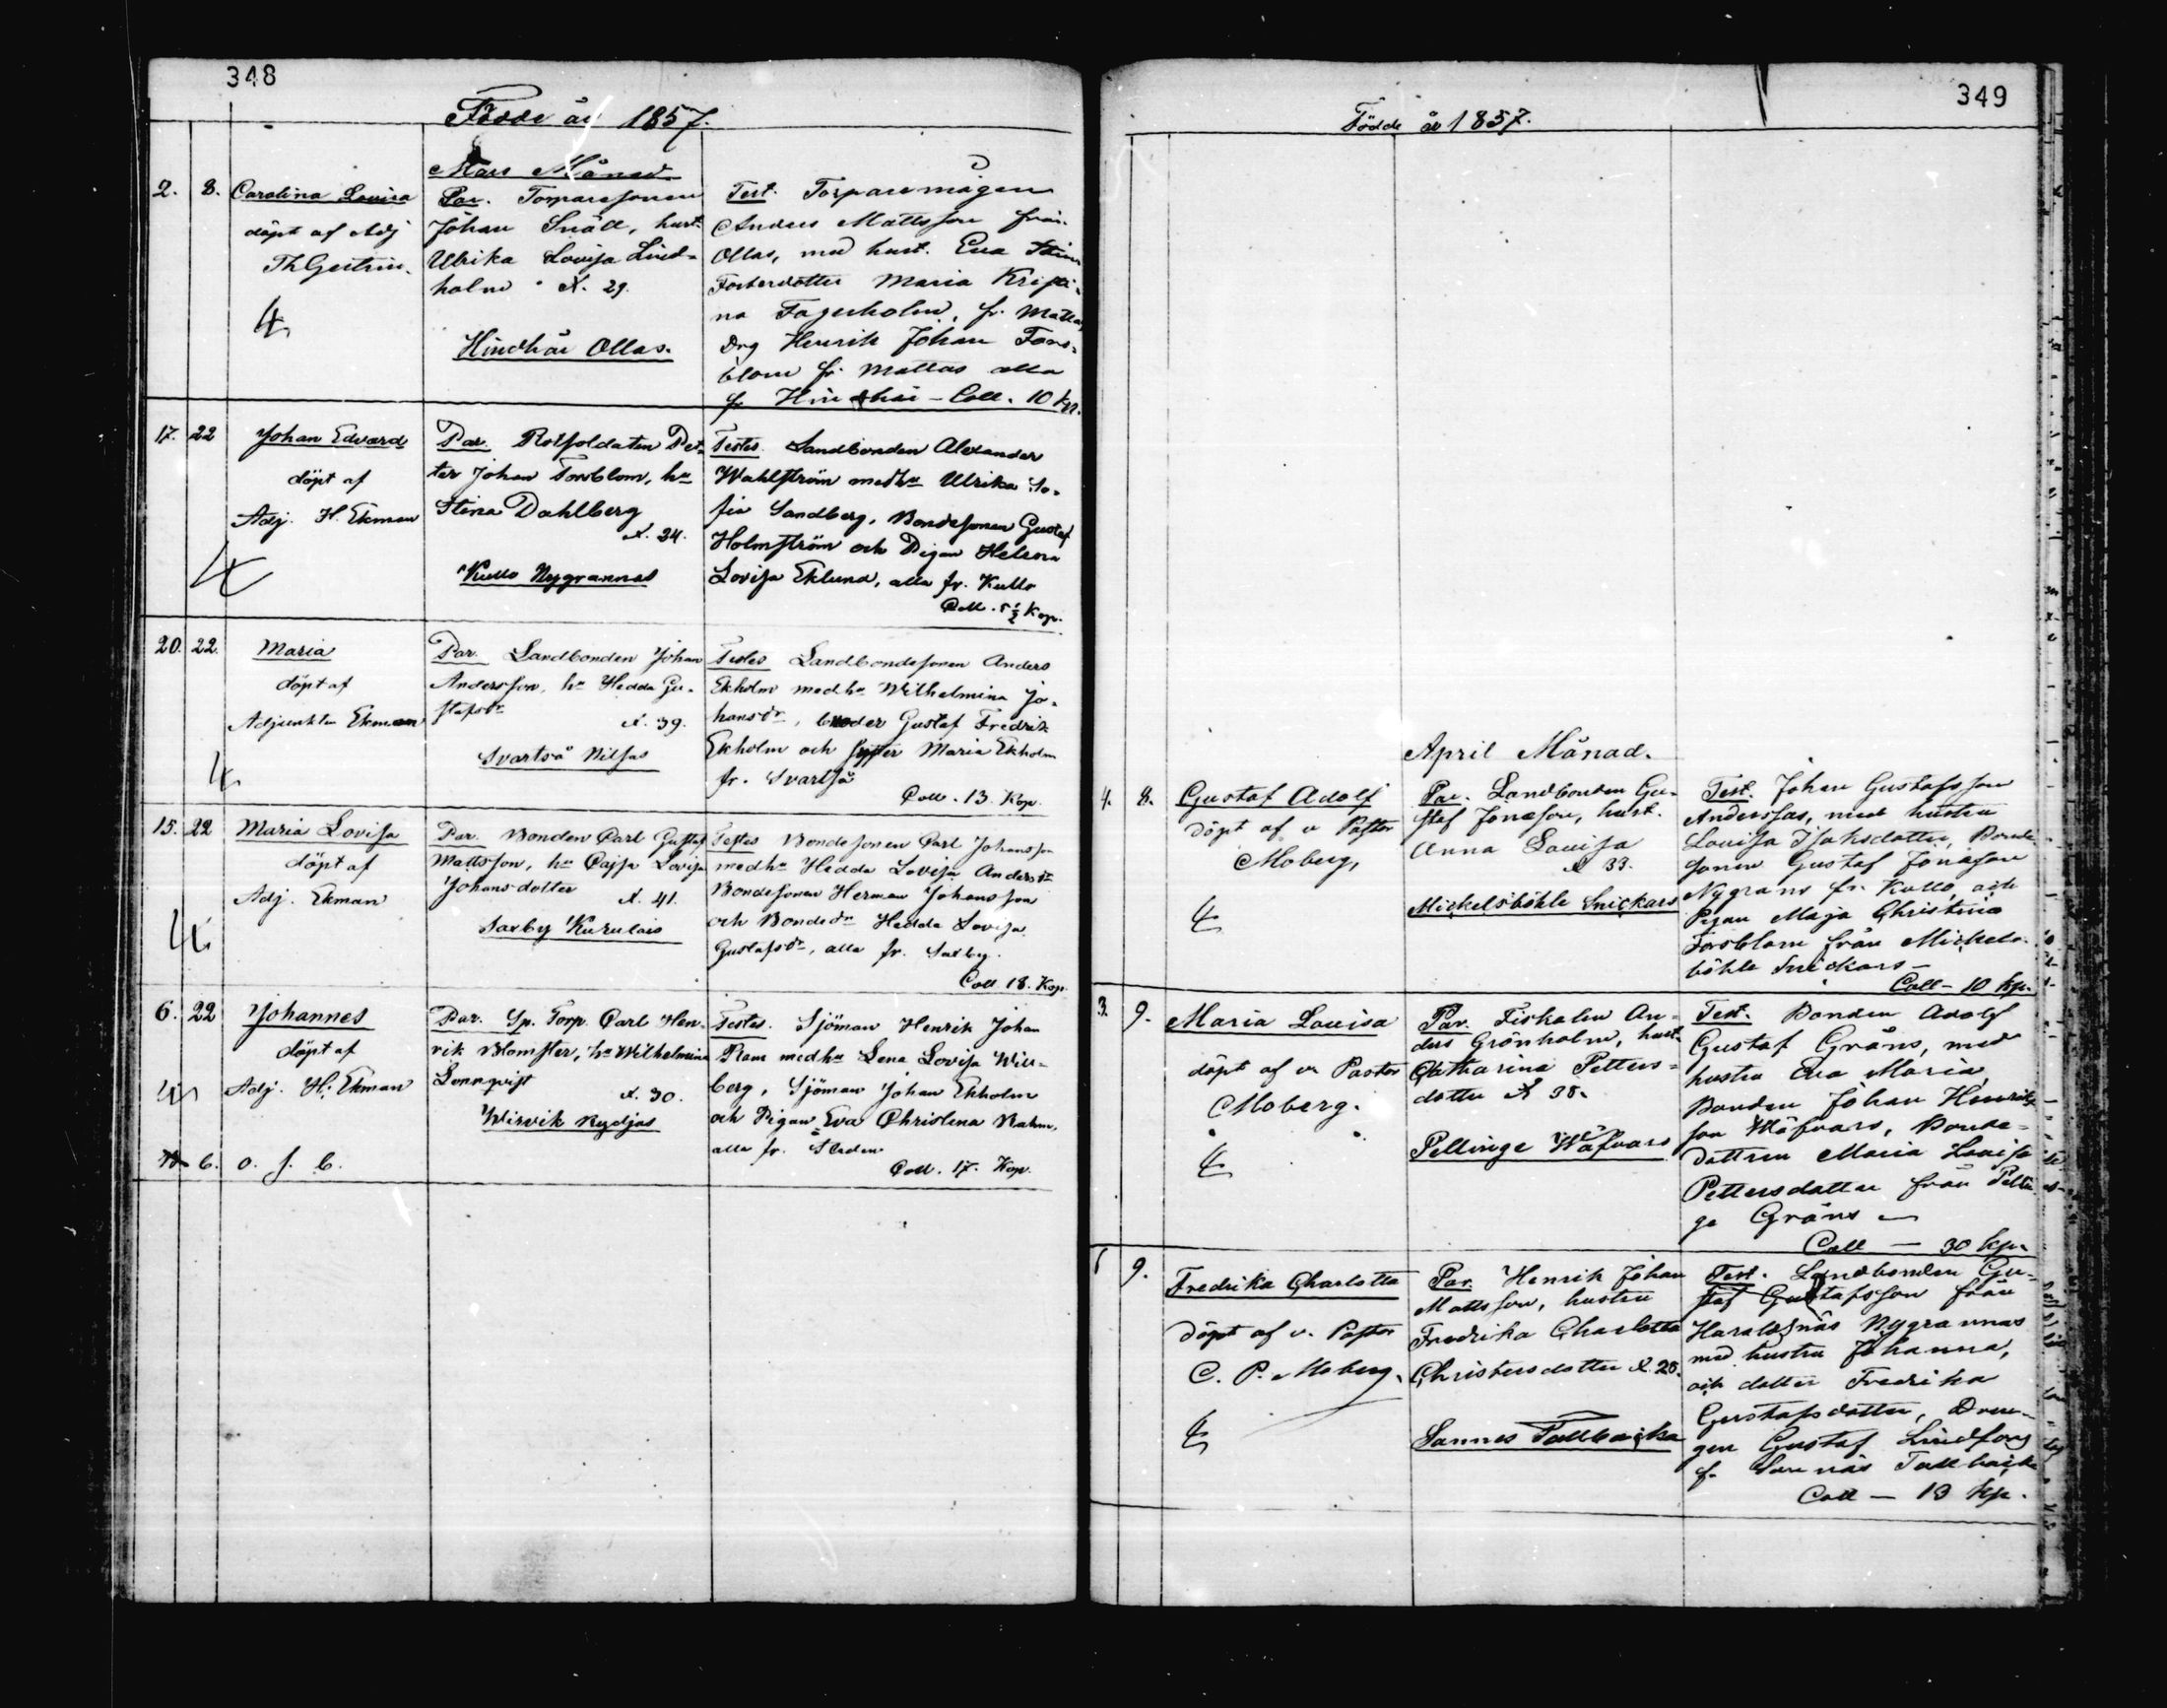 348
Födde år 1857.
Mars Månad
2. 8. Carolina Lovisa
döpt af Adj
4
Par. Torparesonen
Johan Snäll, hust.
Ulrika Lovisa Lind-
holm Å. 29.
Hindhår Ollas.
Test. Torparemågen
Anders Mattsson från
Ollas, med hust. Eva Stina
Fosterdotter Maria Kristi-
na Fagerholm, fr. Mattas
Drg Henrik Johan Fors-
blom fr. Mattas alla
fr Hindhår - Coll. 10 kp.
17. 22 Johan Edvard
döpt af
Adj. H. Ekman
4
Par. Rotsoldaten Pet-
ter Johan Forsblom, hu
Stina Dahlberg
Å. 34.
Kullo Nygrannas
Testes. Landbonden Alexander
Wahlström med hu Ulrika So-
fia Sandberg, Bondesonen Gustaf
Holmström och Pigan Helena
Lovisa Eklund, alla fr. Kullo
Coll. 5 1/2 Kop.
20. 22. Maria
döpt af
Adjunkten Ekman
4
Par. Landbonden Johan
Andersson, hu Hedda Gu-
stafsdr
Å. 39.
Svartså Nilsas
Testes Landbondesonen Anders
Ekholm med hu Wilhelmina Jo-
hansdr, broder Gustaf Fredrik
Ekholm och syster Maria Ekholm
fr. Svartså
Coll. 13. Kop.
15. 22 Maria Lovisa
döpt af
Adj. Ekman
4
Par. Bonden Carl Gustaf
Mattsson, hu Cajsa Lovisa
Johansdotter Å. 41.
Saxby Kurulais
Testes Bondesonen Carl Johansson
med hu Hedda Lovisa Andersdr
Bondesonen Herman Johansson
och Bondedr Hedda Lovisa
Gustafsdr, alla fr. Saxby.
Coll 18. Kop.
6. 22 Johannes
döpt af
Adj. H. Ekman
4
6. o. s. b.
Par. Sp. Torp. Carl Hen-
rik Blomster, hu Wilhelmina
Lönnqvist
Å. 30.
Wirvik Nydjas
Testes. Sjöman Henrik Johan
med hu Lena Lovisa
berg, Sjöman Johan Ekholm
och Pigan Eva Christina
alla fr.
Coll. 17. Kop.
349
Födde år 1857.
April Månad.
4. 8. Gustaf Adolf
döpt af v Pastor
Moberg,
4
Par. Landbonden Gu-
staf Jonæson, hust.
Anna Lovisa
Å 33.
Mickelsböhle Snickars
Test. Johan Gustafsson
Anderssas, med hustru
Lovisa Isaksdotter, Bonde
sonen Gustaf Jonæson
Nygrans fr. Kullo, och
Pigan Maja Christina
Forsblom från Mickels-
böhle Snickars -
Coll - 10 kp.
3. 9. Maria Lovisa
döpt af v. Pastor
Moberg.
4
Par. Fiskalen An-
ders Grönholm, hust.
Catharina Petters-
dotter Å 38.
Pellinge Wäfvars
Test. Bonden Adolf
Gustaf Gräns, med
hustru Eva Maria,
Bonden Johan Henriks
son Wäfvars, Bonde-
dottren Maria Lovisa
Pettersdotter från Pellin
ge Gräns -
Coll - 30 kp.
9. Fredrika Charlotta
döpt af v. Pastor
C. P. Moberg.
4
Par. Henrik Johan
Mattsson, hustru
Fredrika Charlotta
Christersdotter Å. 28.
Sannes Tallbacka
Test. Landbonden Gu-
staf Gustafsson från
Haraldsnäs Nygrannas
med hustru Johanna,
och dotter Fredrika
Gustafsdotter, Dren-
gen Gustaf Lindfors
f. Sannäs Tallbacka
Coll - 13 kp.